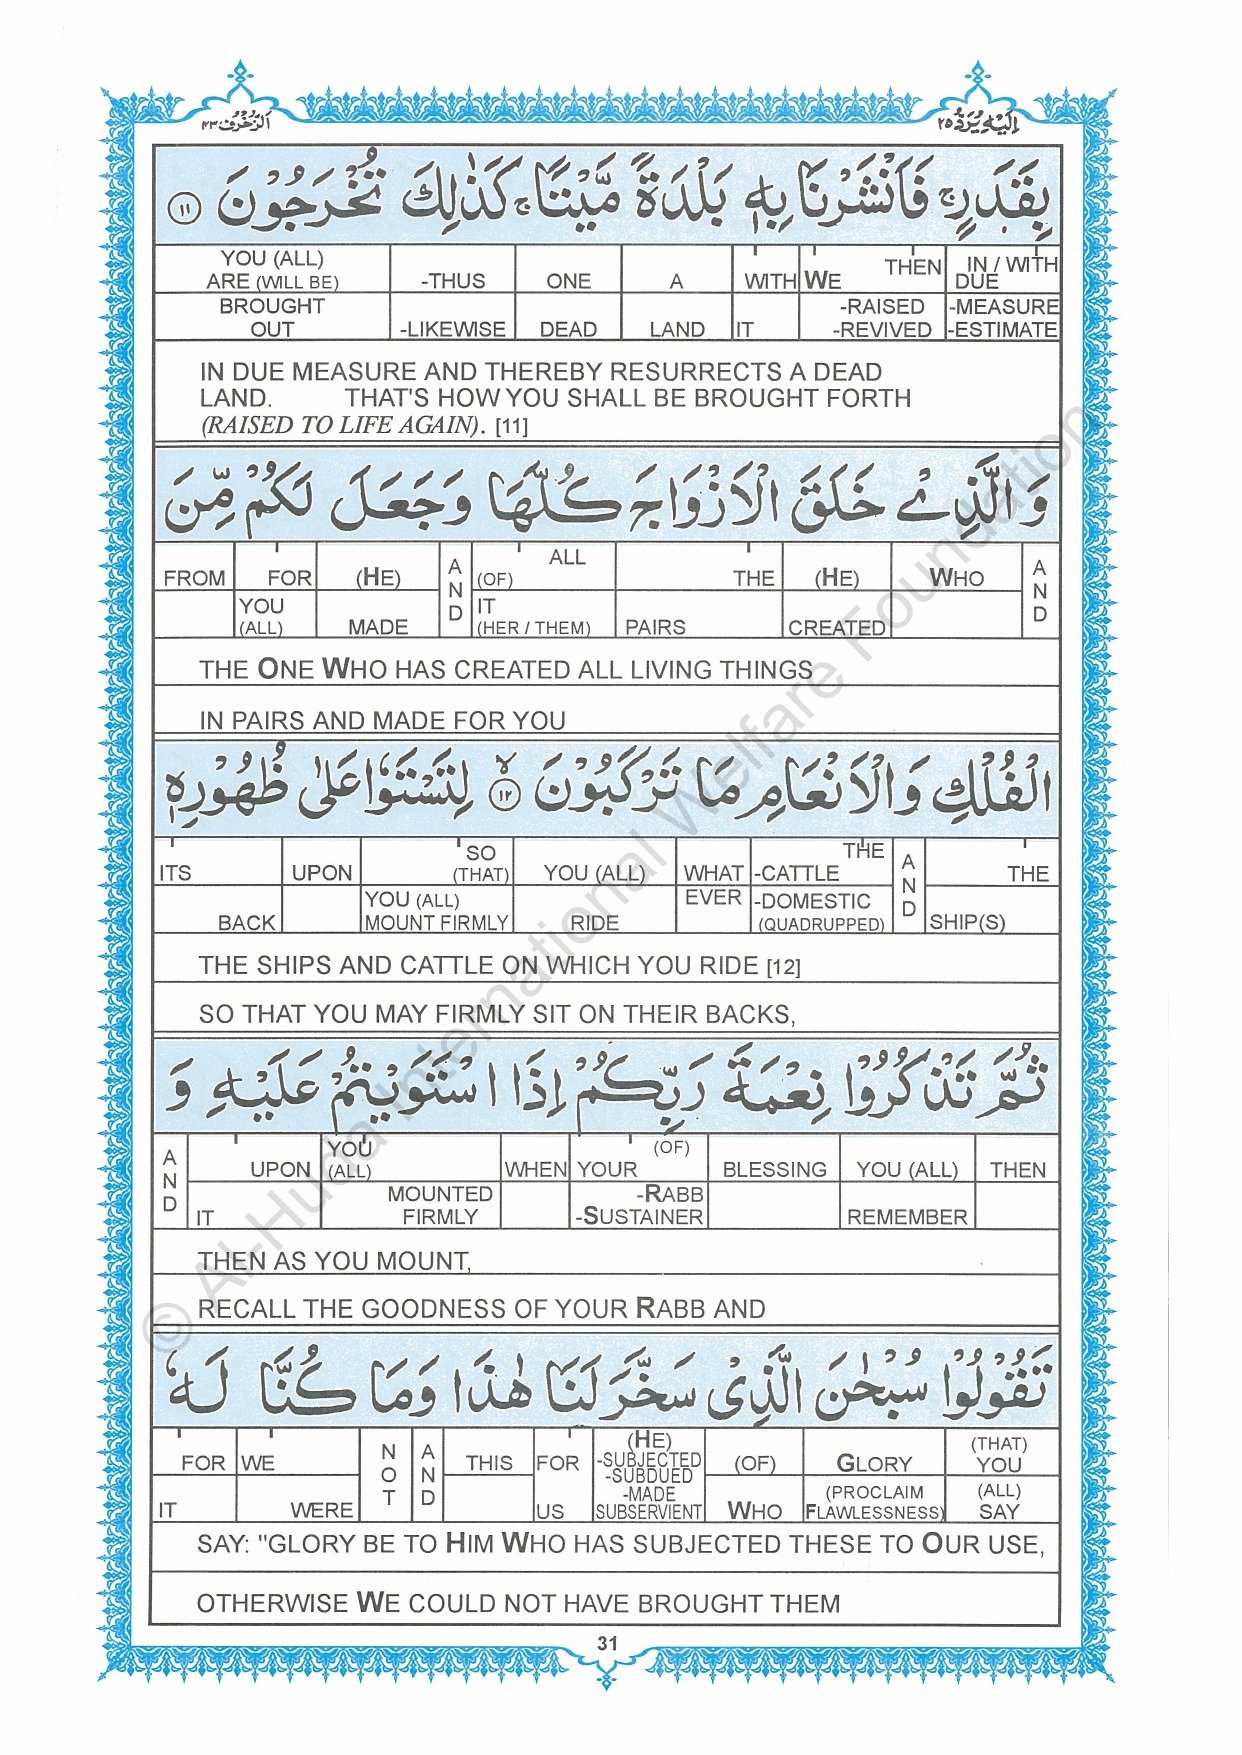 الزخرف ٤٣
اليه يرد ٢٥
بِقَدَرٍ ۚ فَاَنْشَرْنَا بِهٖ بَلْدَةً مَّيْتًا ۚ كَذٰلِكَ تُخْرَجُوْنَ ١١
YOU (ALL) ARE (WILL BE) BROUGHT OUT | -THUS -LIKEWISE | ONE DEAD | A LAND | WITH IT | WE THEN -RAISED -REVIVED | IN / WITH DUE -MEASURE -ESTIMATE
IN DUE MEASURE AND THEREBY RESURRECTS A DEAD
LAND. THAT'S HOW YOU SHALL BE BROUGHT FORTH
(RAISED TO LIFE AGAIN). [11]
وَالَّذِيْ خَلَقَ الْاَزْوَاجَ كُلَّهَا وَجَعَلَ لَكُمْ مِّنَ
FROM | FOR YOU (ALL) | (HE) MADE | AND | ALL (OF) IT (HER / THEM) | THE PAIRS | (HE) CREATED | WHO | AND
THE ONE WHO HAS CREATED ALL LIVING THINGS
IN PAIRS AND MADE FOR YOU
الْفُلْكِ وَالْاَنْعَامِ مَا تَرْكَبُوْنَ ١٢ لِتَسْتَوٗا عَلٰى ظُهُوْرِهٖ
ITS BACK | UPON | SO (THAT) YOU (ALL) MOUNT FIRMLY | YOU (ALL) RIDE | WHAT EVER | THE -CATTLE -DOMESTIC (QUADRUPPED) | AND | THE SHIP(S)
THE SHIPS AND CATTLE ON WHICH YOU RIDE [12]
SO THAT YOU MAY FIRMLY SIT ON THEIR BACKS,
ثُمَّ تَذْكُرُوْا نِعْمَةَ رَبِّكُمْ اِذَا اسْتَوَيْتُمْ عَلَيْهِ وَ
AND | UPON IT | YOU (ALL) MOUNTED FIRMLY | WHEN | YOUR (OF) -RABB -SUSTAINER | BLESSING | YOU (ALL) REMEMBER | THEN
THEN AS YOU MOUNT,
RECALL THE GOODNESS OF YOUR RABB AND
تَقُوْلُوْا سُبْحٰنَ الَّذِيْ سَخَّرَ لَنَا هٰذَا وَمَا كُنَّا لَهٗ
FOR IT | WE WERE | NOT | AND | THIS | FOR US | (HE) -SUBJECTED -SUBDUED -MADE SUBSERVIENT | (OF) WHO | GLORY (PROCLAIM FLAWLESSNESS) | (THAT) YOU (ALL) SAY
SAY: "GLORY BE TO HIM WHO HAS SUBJECTED THESE TO OUR USE,
OTHERWISE WE COULD NOT HAVE BROUGHT THEM
31
© Al-Huda International Welfare Foundation